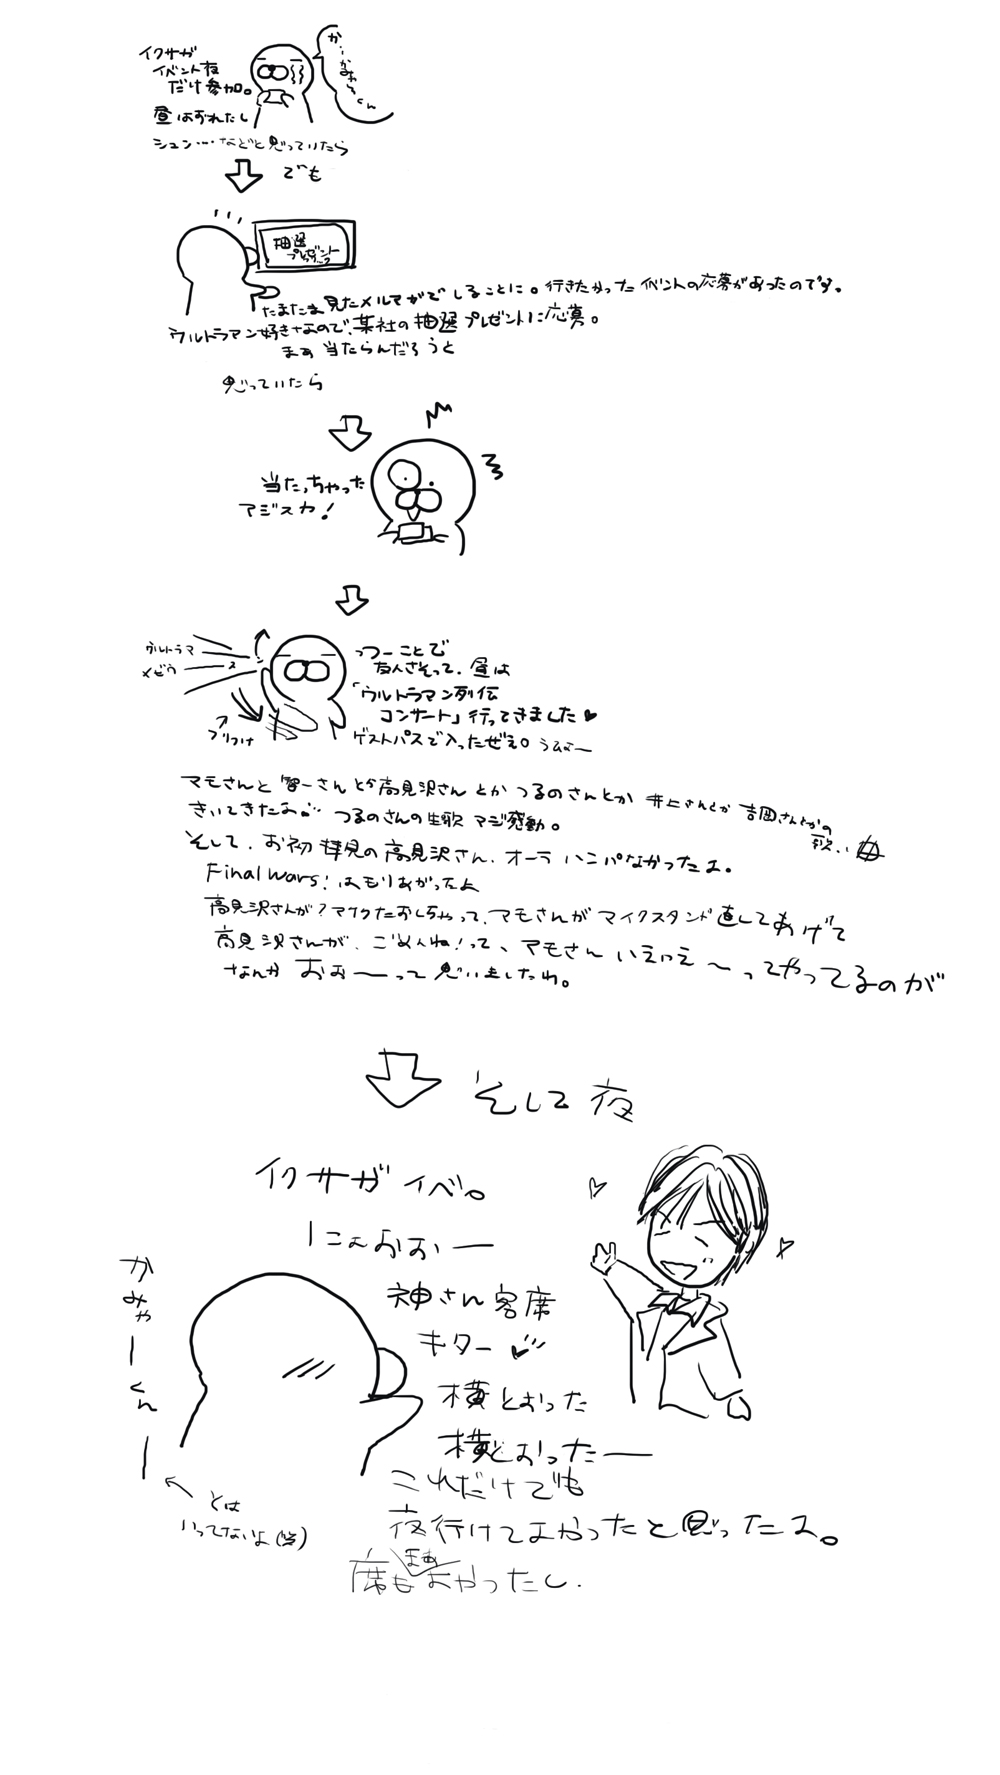 イクサガ
イベント夜
だけ参加。
昼ははずれたし
か…かみやくん
シュン…などと思っていたら
でも
抽選
プレゼント
たまたま見たメルマガでしることに。行きたかったイベントの応募があったのです。
ウルトラマン好きなので、某社の抽選プレゼントに応募。
まぁ当たらんだろうと
思っていたら
当たっちゃった
マジスカ!
ウルトラマ
メビウ
ス
フリつけ
っつーことで
友人さそって、昼は
「ウルトラマン列伝
コンサート」行ってきました♥
ゲストパスで入ったぜぇ。うふふー
マモさんと智一さんとか高見沢さんとかつるのさんとか井上さんとか吉岡さんとかの
歌、、
きいてきたよ… つるのさんの生歌マジ感動。
そして、お初拝見の高見沢さん、オーラハンパなかったよ。
Final wars! はもりあがったよ
高見沢さんが?マイクたおしちゃって、マモさんがマイクスタンド直してあげて
高見沢さんが、ごめんね!って、マモさんいえいえ〜ってやってるのが
なんかおぉーって思いましたわ。
そして夜
イクサガイベ。
にょおおー
神さん客席
キター♥
横とおった
横とおったー
これだけでも
夜行けてよかったと思ったよ。
まぁ
席もよかったし.
かみやーくんー
とは
いってないよ(笑)